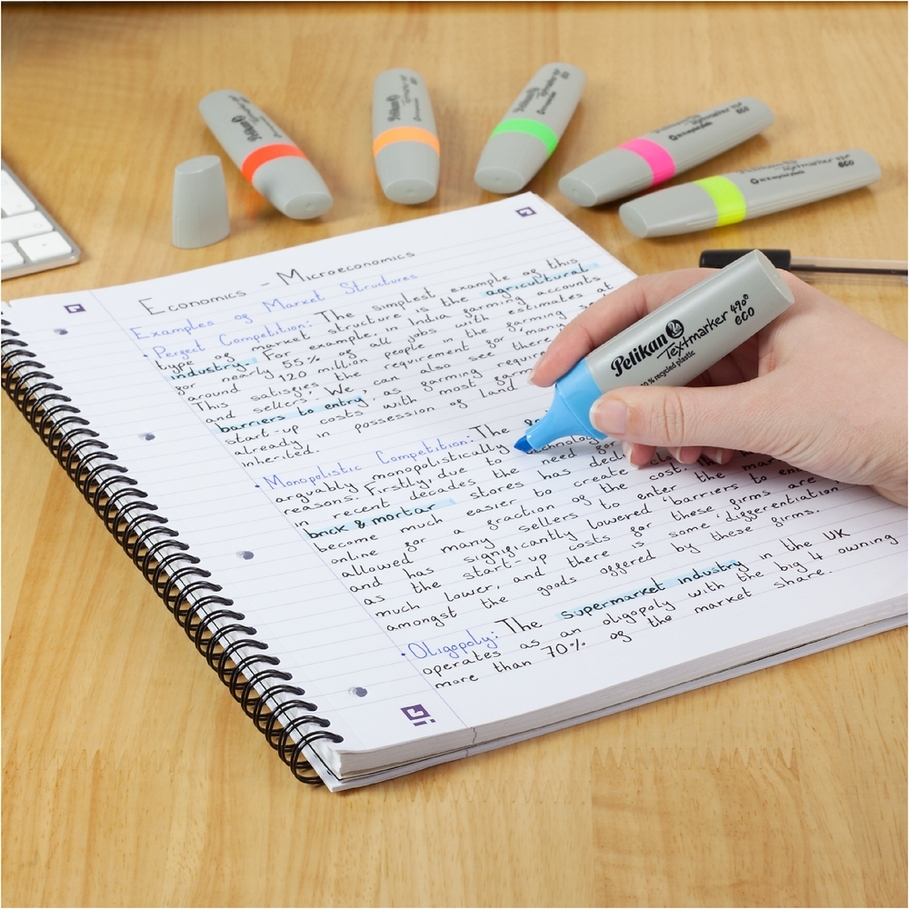 Pelikan
Textmarker 490
eco
Pelikan
Textmarker 490
eco
Pelikan
Textmarker 490®
eco
% recycled plastic
Economics - Microeconomics
Examples of Market Structures
• Perfect Competition: The simplest example of this
type of market structure is the agricultural
industry. For example, in India farming accounts
for nearly 55% of all jobs with estimates at
around 120 million people in the farming
This satisfies the requirement for many
and sellers. We can also see there
barriers to entry as farming require
start-up costs with most farm
already in possession of land
inherited.
• Monopolistic Competition: The
arguably monopolistically
reasons. Firstly, due to technology
in recent decades the need for
brick & mortar stores has decl
become much easier to create
online for a fraction of the cost.
allowed many sellers to enter the mar
and has significantly lowered 'barriers to en
as the start-up costs for these firms are
much lower, and there is some 'differentiation'
amongst the goods offered by these firms.
• Oligopoly: The supermarket industry in the UK
operates as an oligopoly with the big 4 owning
more than 70% of the market share.